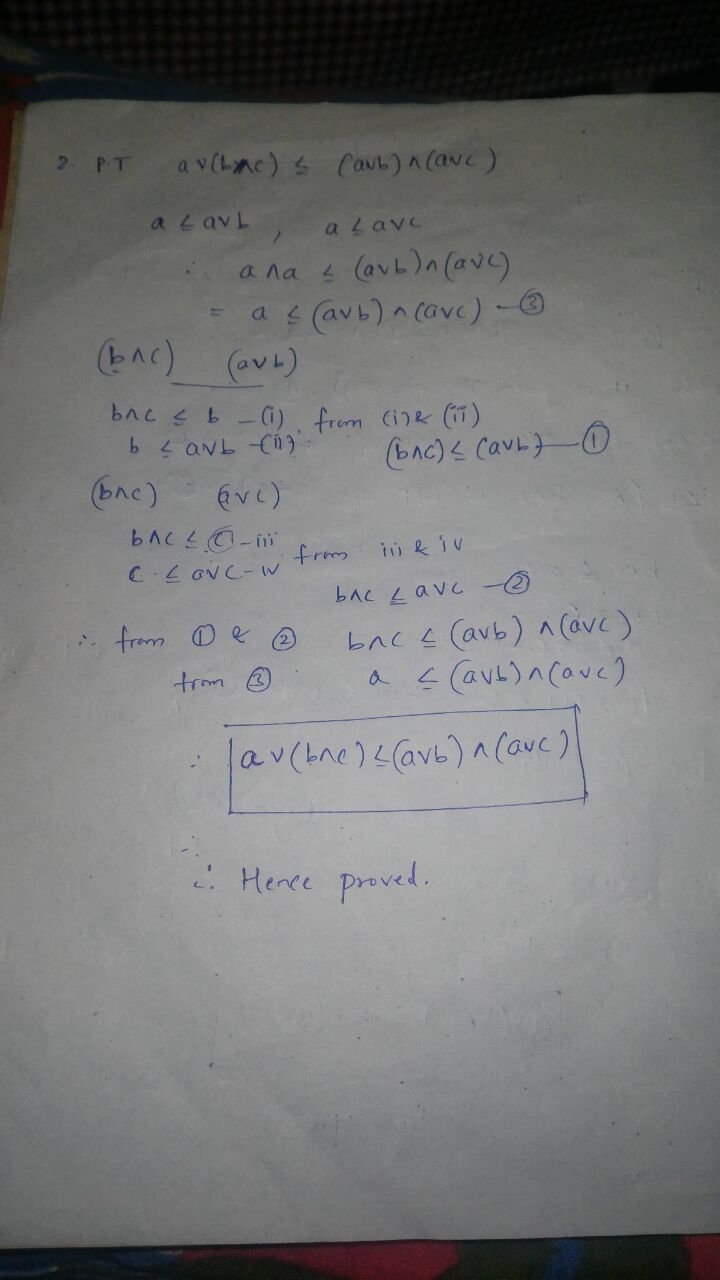 2. P.T a∨(b∧c) ≤ (a∨b)∧(a∨c)
a ≤ a∨b, a ≤ a∨c
∴ a∧a ≤ (a∨b)∧(a∨c)
= a ≤ (a∨b)∧(a∨c) - ③
(b∧c) (a∨b)
b∧c ≤ b - (i), from (i) & (ii)
b ≤ a∨b - (ii). (b∧c) ≤ (a∨b) - ①
(b∧c) (a∨c)
b∧c ≤ c - iii from iii & iv
c ≤ a∨c - iv
b∧c ≤ a∨c - ②
∴ from ① & ② b∧c ≤ (a∨b) ∧(a∨c)
from ③ a ≤ (a∨b)∧(a∨c)
∴ a∨(b∧c) ≤ (a∨b)∧(a∨c)
∴ Hence proved.